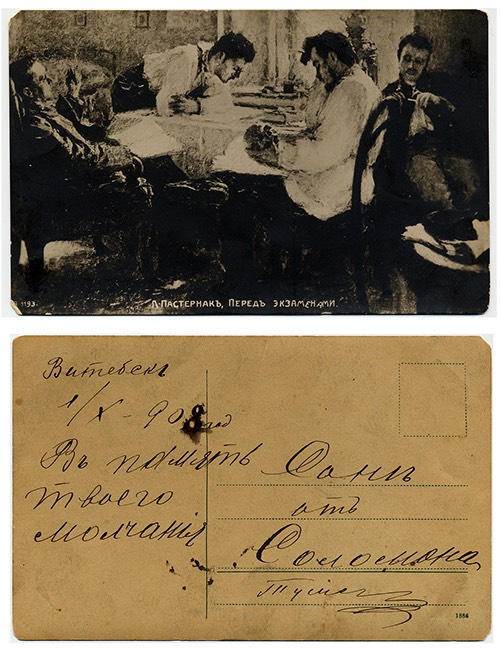 1193.
Л. ПАСТЕРНАКЪ, ПЕРЕДЪ ЭКЗАМЕНАМИ.
Витебскъ
1/X-908 год
Въ память
твоего
молчанія
Сонѣ
отъ
Соломона
1884